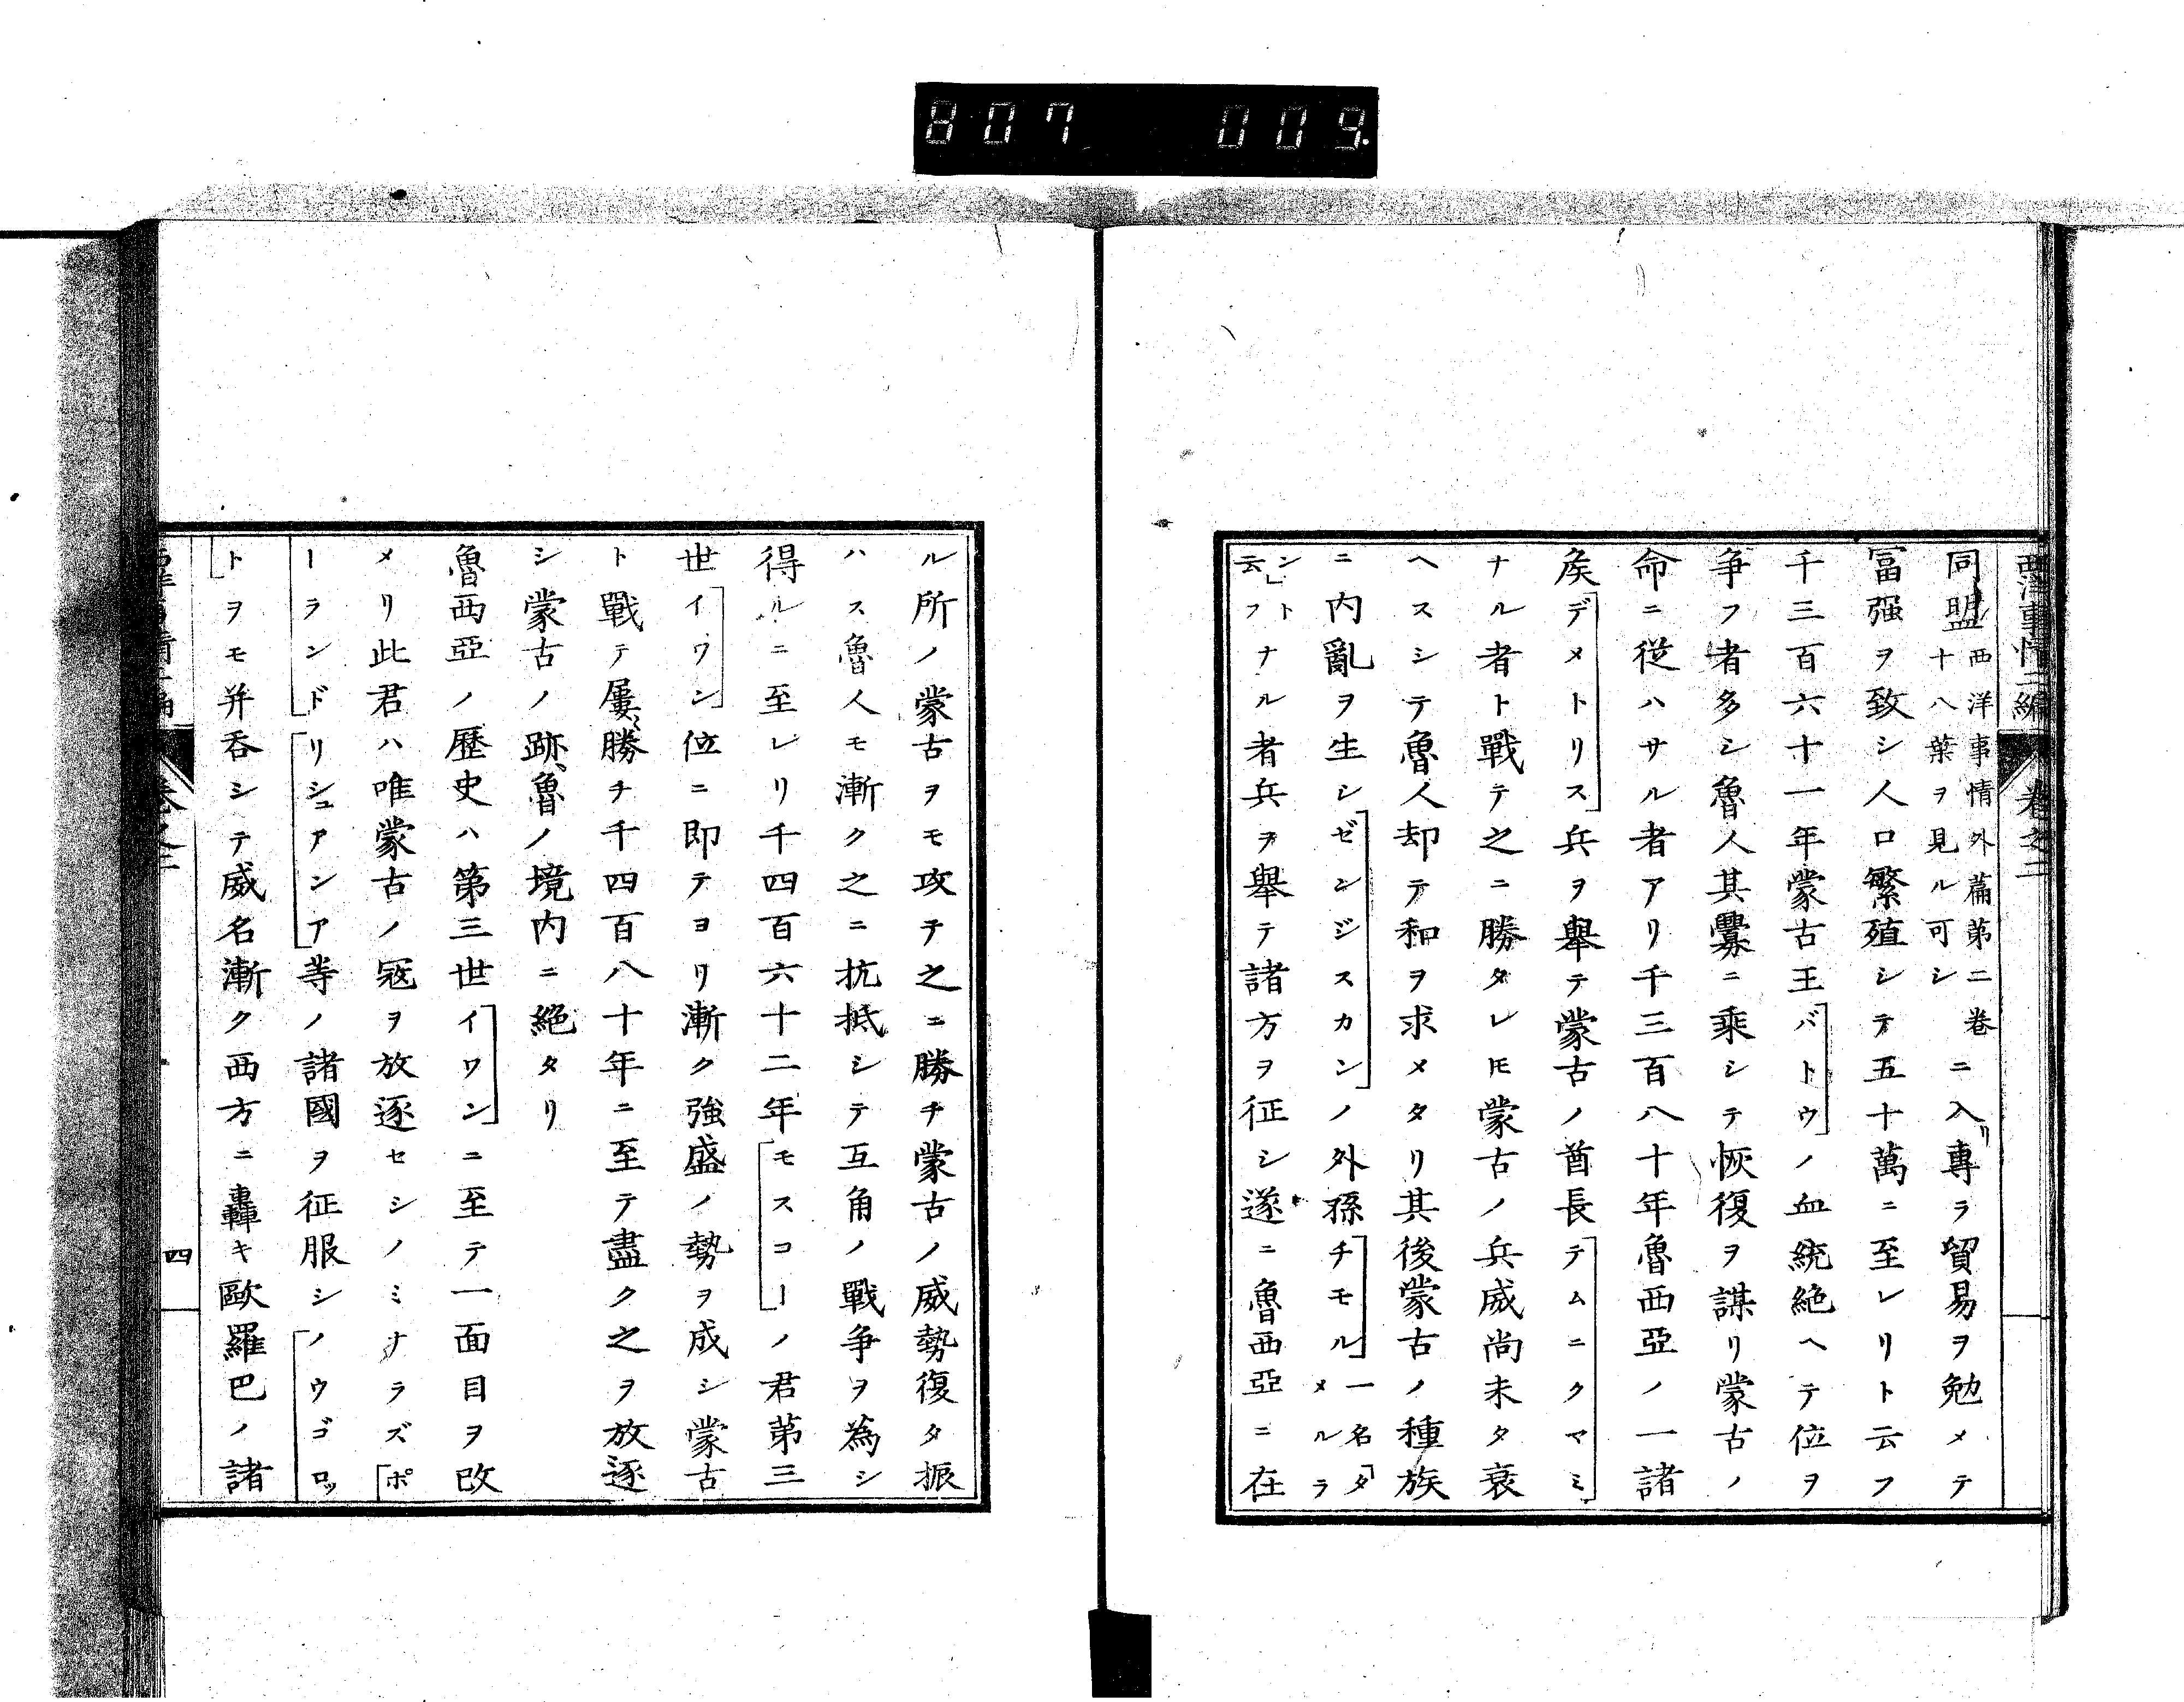 807 009.
西洋事情二編 卷之二
同盟西洋事情外篇第二卷十八葉ヲ見ル可シニ入リ專ラ貿易ヲ勉メテ
冨强ヲ致シ人口繁殖シテ五十萬ニ至レリト云フ
千三百六十一年蒙古王「バトウ」ノ血統絶ヘテ位ヲ
爭フ者多シ魯人其釁ニ乘シテ恢復ヲ謀リ蒙古ノ
命ニ從ハサル者アリ千三百八十年魯西亞ノ一諸
矦「デメトリス」兵ヲ舉テ蒙古ノ酋長「テムニクマミ」
ナル者ト戰テ之ニ勝タレ𪜈蒙古ノ兵威尚未タ衰
ヘスシテ魯人却テ和ヲ求メタリ其後蒙古ノ種族
ニ内亂ヲ生シ「ゼンジスカン」ノ外孫「チモル」一名「タメルラ
ン」ト云フナル者兵ヲ舉テ諸方ヲ征シ遂ニ魯西亞ニ在
ル所ノ蒙古ヲモ攻テ之ニ勝チ蒙古ノ威勢復タ振
ハス魯人モ漸ク之ニ抗抵シテ互角ノ戰爭ヲ為シ
得ルニ至レリ千四百六十二年「モスコー」ノ君第三
世「イワン」位ニ即テヨリ漸ク強盛ノ勢ヲ成シ蒙古
ト戰テ屢〻勝チ千四百八十年ニ至テ盡ク之ヲ放逐
シ蒙古ノ跡魯ノ境内ニ絶タリ
魯西亞ノ歷史ハ第三世「イワン」ニ至テ一面目ヲ改
メリ此君ハ唯蒙古ノ寇ヲ放逐セシノミナラズ「ポ
ーランド」「リシュアンア」等ノ諸國ヲ征服シ「ノウゴロッ
ト」ヲモ并呑シテ威名漸ク西方ニ轟キ歐羅巴ノ諸
四